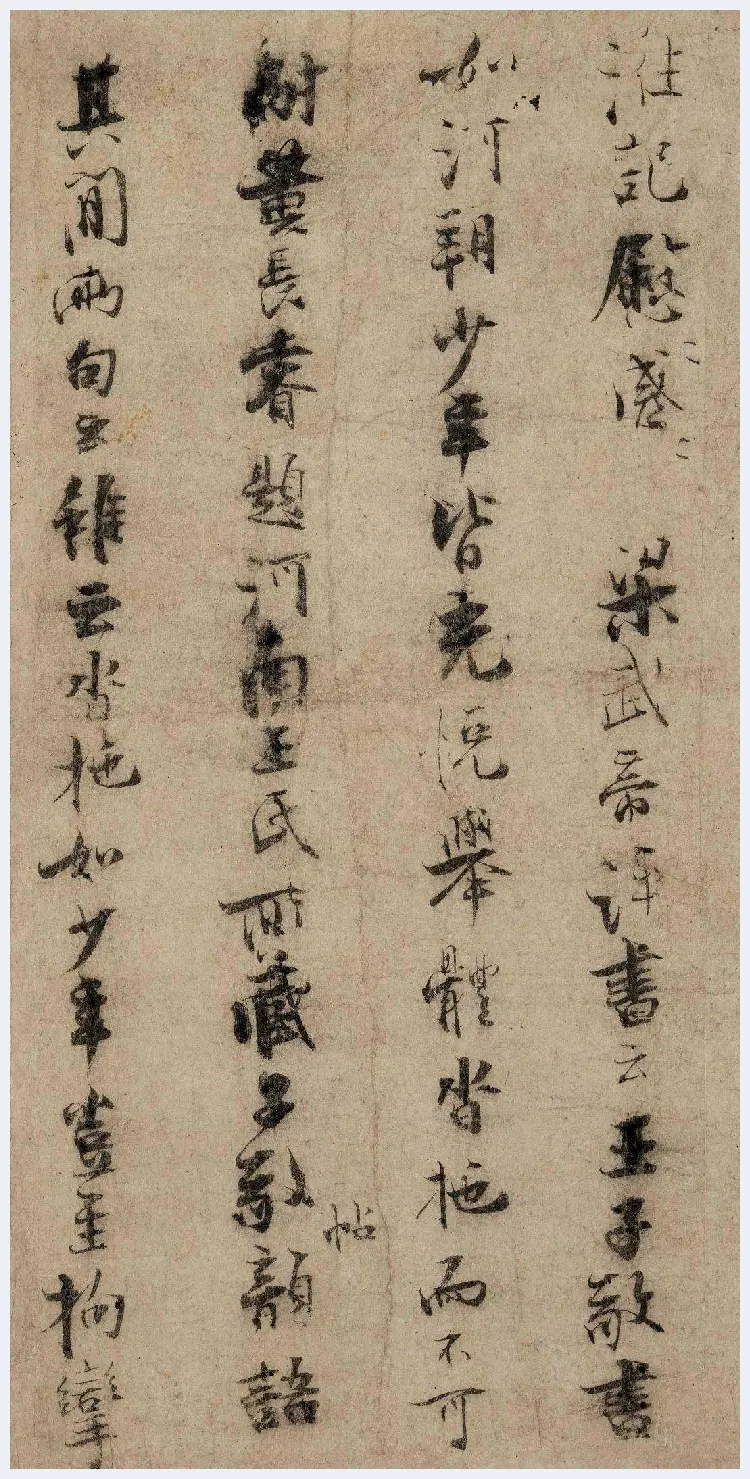 注記慰〻感〻 梁武帝評書云王子敬書
如河朔少年皆充悅舉體沓拖而不可
耐黄長睿題河南王氏所藏子敬帖韻語
其間兩句云雖云沓拖如少年豈至拘攣